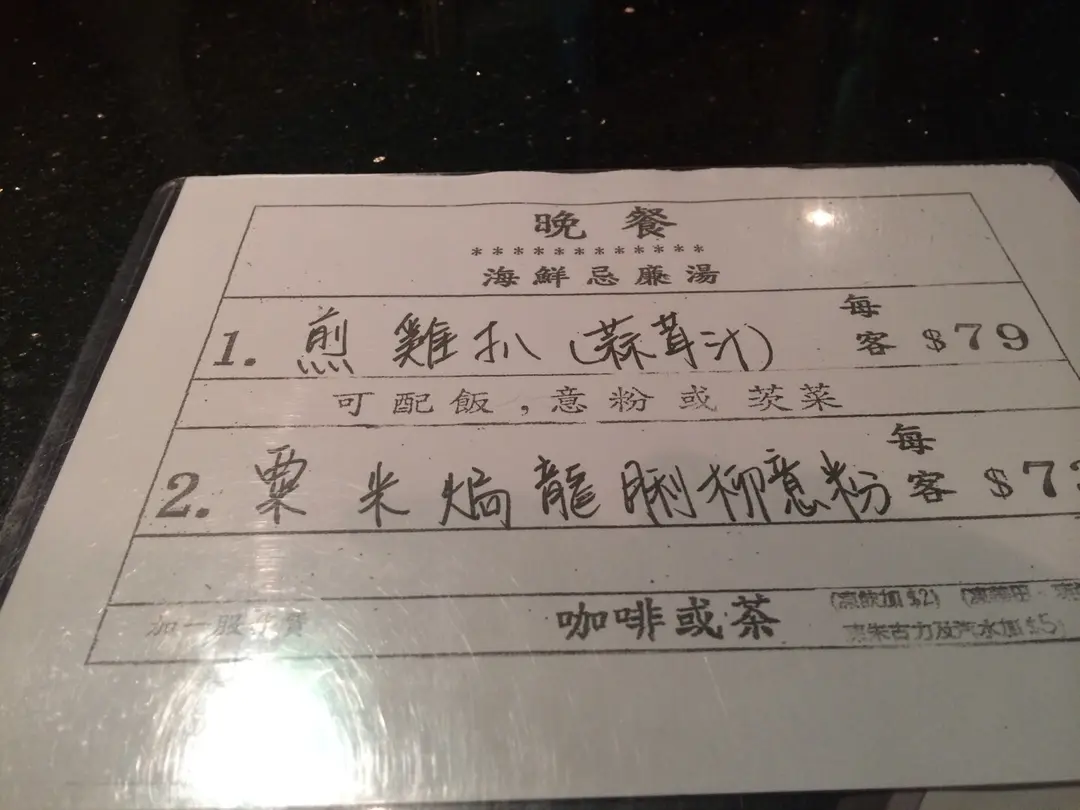 晚餐
************
海鮮忌廉湯
1. 煎雞扒(蒜茸汁) 每客 $79
可配飯,意粉或茨菜
2. 粟米焗龍脷柳意粉 每客 $7
加一服 咖啡或茶 (凍飲加$2)
朱古力及汽水加$5)